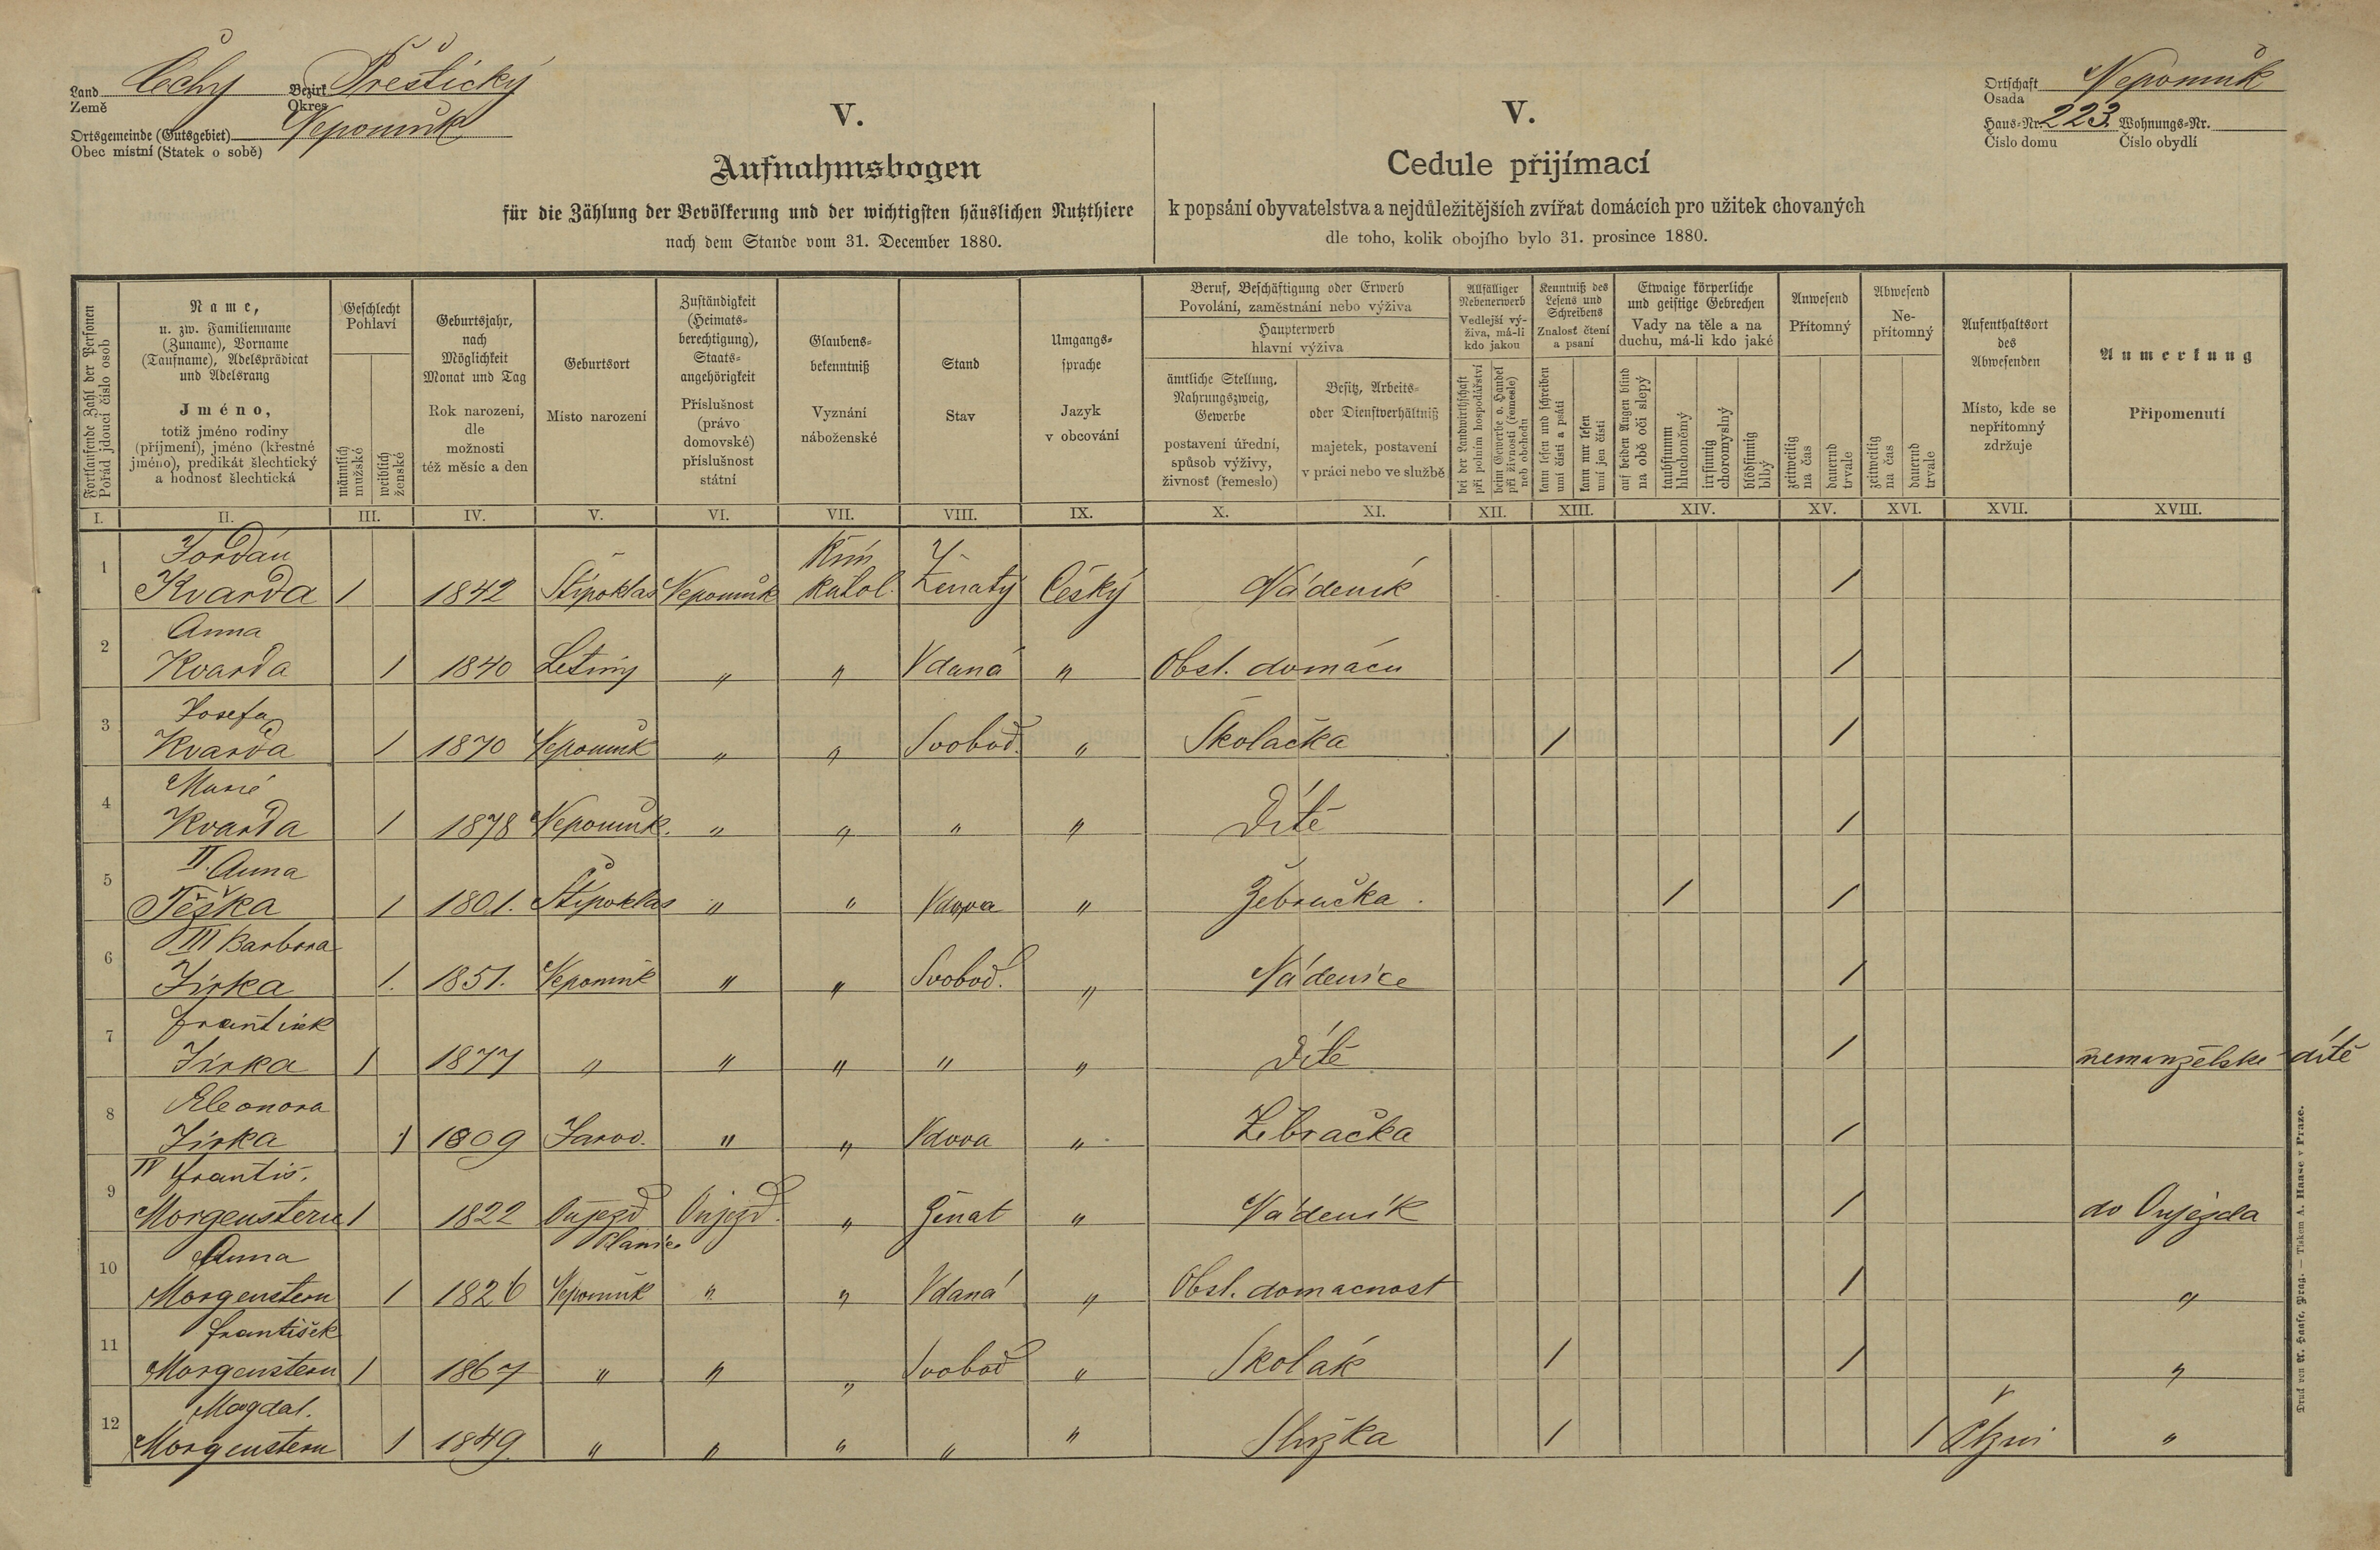 Land Čechy Bezirk Přeštický
Země Okres
Ortsgemeinde (Gutsgebiet) Nepomuk
Obec místní (Statek o sobě)
V.
Aufnahmsbogen
für die Zählung der Bevölkerung und der wichtigsten häuslichen Nutzthiere
nach dem Stande vom 31. December 1880.
V.
Cedule přijímací
k popsání obyvatelstva a nejdůležitějších zvířat domácích pro užitek chovaných
dle toho, kolik obojího bylo 31. prosince 1880.
Ortschaft Nepomuk
Osada
Haus-Nr. 223. Wohnungs-Nr.
Číslo domu Číslo obydlí
Fortlaufende Zahl der Personen
Pořád jdoucí číslo osob
Name,
u. zw. Familienname
(Zuname), Vorname
(Taufname), Adelsprädicat
und Adelsrang
Jméno,
totiž jméno rodiny
(příjmení), jméno (křestné
jméno), predikát šlechtický
a hodnosť šlechtická
Geschlecht
Pohlaví
männlich
mužské
weiblich
ženské
Geburtsjahr,
nach
Möglichkeit
Monat und Tag
Rok narození,
dle
možnosti
též měsíc a den
Geburtsort
Místo narození
Zuständigkeit
(Heimats-
berechtigung),
Staats-
angehörigkeit
Příslušnost
(právo
domovské)
příslušnost
státní
Glaubens-
bekenntniß
Vyznání
náboženské
Stand
Stav
Umgangs-
sprache
Jazyk
v obcování
Beruf, Beschäftigung oder Erwerb
Povolání, zaměstnání nebo výživa
Haupterwerb
hlavní výživa
ämtliche Stellung,
Nahrungszweig,
Gewerbe
postavení úřední,
spůsob výživy,
živnosť (řemeslo)
Besitz, Arbeits-
oder Dienstverhältniß
majetek, postavení
v práci nebo ve službě
Allfälliger
Nebenerwerb
Vedlejší vý-
živa, má-li
kdo jakou
bei der Landwirthschaft
při polním hospodářství
beim Gewerbe o. Handel
při živnosti (řemesle)
neb obchodu
Kenntniß des
Lesens und
Schreibens
Znalosť čtení
a psaní
kann lesen und schreiben
umí čísti a psáti
kann nur lesen
umí jen čísti
Etwaige körperliche
und geistige Gebrechen
Vady na těle a na
duchu, má-li kdo jaké
auf beiden Augen blind
na obě oči slepý
taubstumm
hluchoněmý
irrsinnig
choromyslný
blödsinnig
blbý
Anwesend
Přítomný
zeitweilig
na čas
dauernd
trvale
Abwesend
Ne-
přítomný
zeitweilig
na čas
dauernd
trvale
Aufenthaltsort
des
Abwesenden
Místo, kde se
nepřítomný
zdržuje
Anmerkung
Připomenutí
I. II. III. IV. V. VI. VII. VIII. IX. X. XI. XII. XIII. XIV. XV. XVI. XVII. XVIII.
Jordán Řím
1 Kvarda 1 1842 Štipoklas Nepomuk katol. Ženatý Český Nádeník 1
Anna
2 Kvarda 1 1840 Letiny " " Vdaná " Obsl. domácn 1
Josefa
3 Kvarda 1 1870 Nepomuk " " Svobod. " Školačka 1 1
Marie
4 Kvarda 1 1878 Nepomuk. " " " " Dítě 1
II. Anna
5 Téška 1 1801. Štipoklas " " Vdova " Žebračka. 1 1
III Barbora
6 Jirka 1. 1851. Nepomuk " " Svobod. " Nádenice 1
František
7 Jirka 1 1877 " " " " " Dítě 1 nemanželske dítě
Eleonora
8 Jirka 1 1809 Jarov. " " Vdova " Žebračka 1
IV Františ.
9 Morgenstern 1 1822 Oujezd Oujezd. " Ženat " Nádeník 1 do Oujezda
Anna Planice
10 Morgenstern 1 1826 Nepomuk " " Vdaná " Obsl. domacnost 1 "
František
11 Morgenstern 1 1867 " " " Svobod " Školák 1 1 "
Magdal. v
12 Morgenstern 1 1849. " " " " " Služka 1 1 Plzni "
Druck von A. Haase, Prag. — Tiskem A. Haase v Praze.